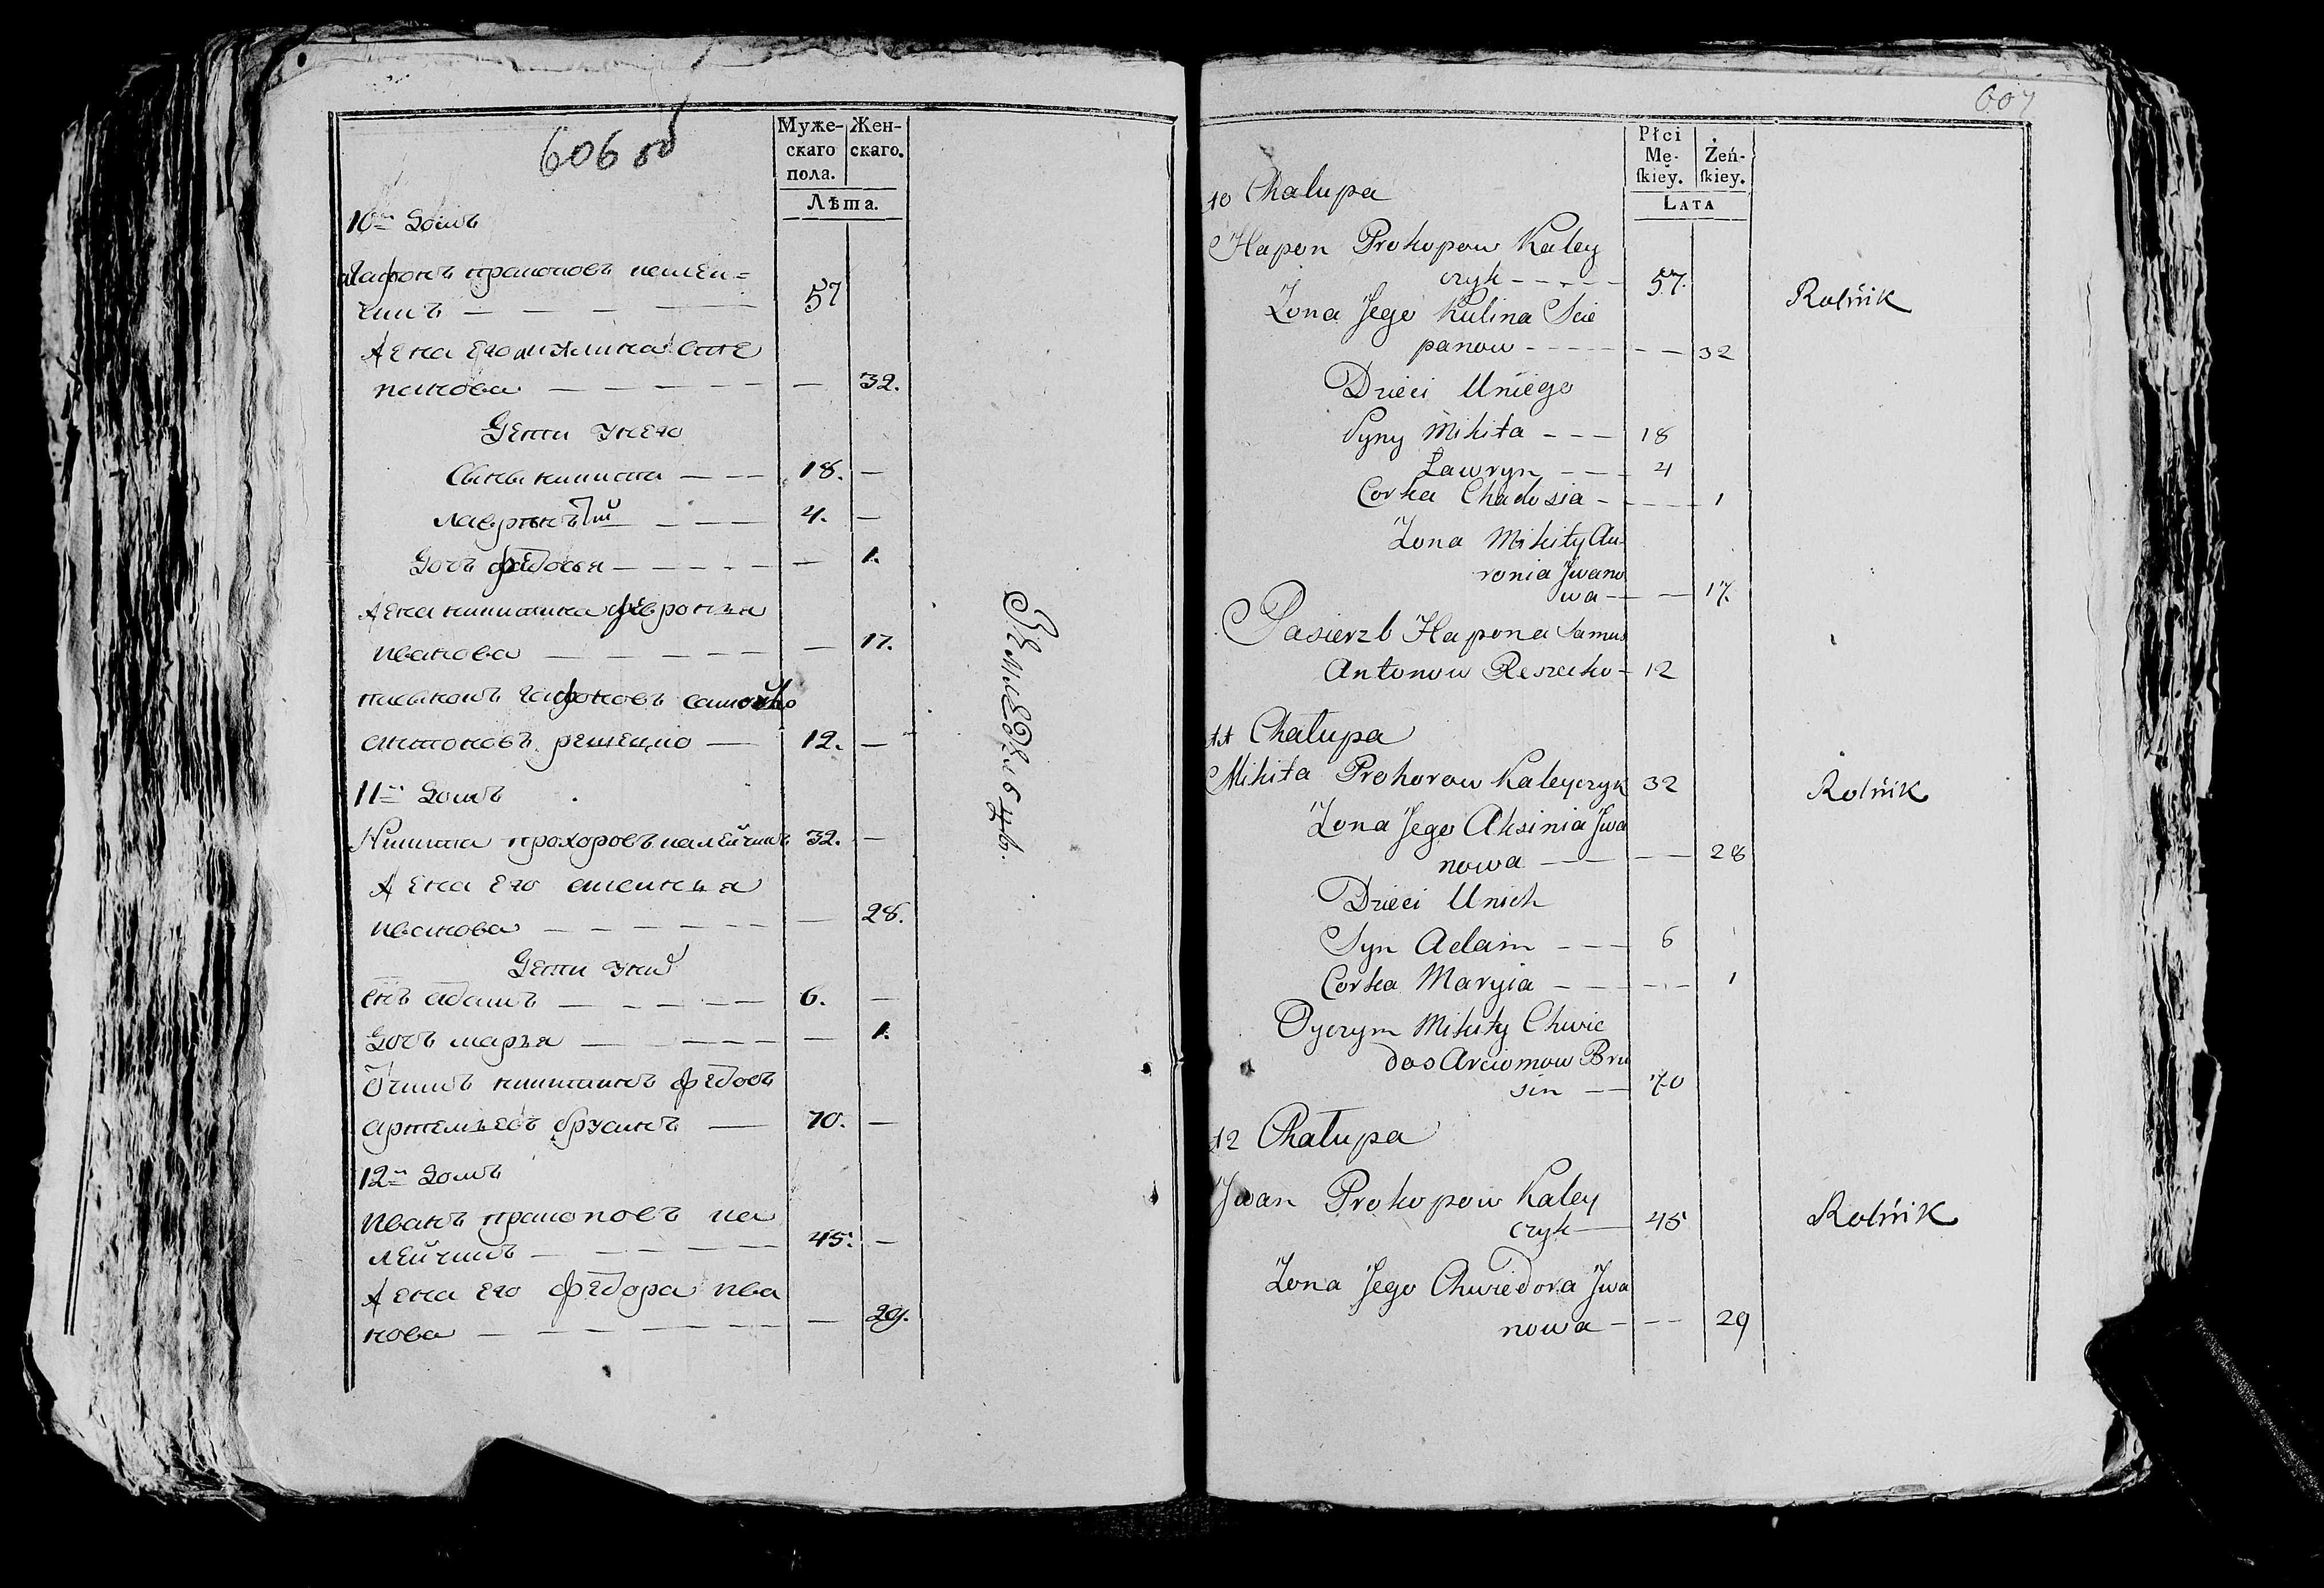 606 об
Муже-
скаго
пола.
Жен-
скаго.
Лѣта.
10й Домъ
Гафонъ прокоповъ калей=
чикъ — — — — 57
Жена его акилина степ
панова — — — — — 32.
Дети унего
Сыны никита — — 18. —
лаврентий — — — 4. —
Дочь федосья — — — — — 1.
Жена никитина февронья
иванова — — — — — 17.
пасынокъ гафоновъ самойло
антоновъ решецко — 12. —
11й Домъ
Никита прохоровъ калейчикъ 32. —
Жена его аксинья
иванова — — — — — 28.
Дети уних
снъ адамъ — — — — — 6. —
Дочь марья — — — — — 1.
Отчимъ никитинъ федосъ
артемьевъ брусинъ — 70. —
12й Домъ
иванъ прокоповъ ка
лейчикъ — — — — 45. —
Жена его федора ива
нова — — — — — — 29.
Земледелецъ.
607
Płci
Mę-
ſkiey.
Żeń-
ſkiey.
LATA
10 Chalupa
Hapon Prokopow Kaley
czyk - - - - - 57.
Rolnik
Zona Jego Kulina Scie
panow - - - - - - 32
Dzieci Uniego
Syny Mikita - - - 18
Ławryn - - - 4
Corka Chadosia - - - - 1
Zona Mikity Au-
ronia Jwano
wa - - - 17.
Pasierzb Hapona Samus
Antonow Reszecko - 12
11 Chałupa
Mikita Prohorow Kaleyczyk 32
Rolnik
Zona Jego Aksinia Jwa
nowa — — — 28
Dzieci Unich
Syn Adam - - - 6
Corka Maryia - - - - - 1
Oyczym Mikity Chwie
dos Arciomow Bru
sin — — 70
12 Chałupa
Jwan Prokopow Kaley
czyk — 45
Rolnik
Zona Jego Chwiedora Jwa
nowa - - - - 29